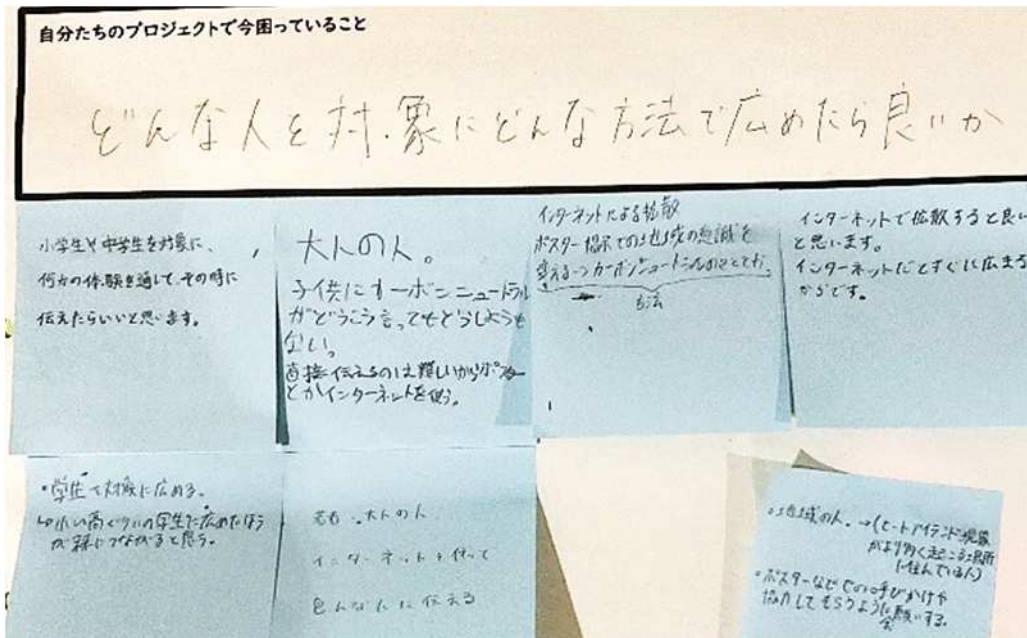 自分たちのプロジェクトで今困っていること
どんな人を対象にどんな方法で広めたら良いか
小学生や中学生を対象に、
何かの体験を通して、その時に
伝えたらいいと思います。
大人の人。
子供にカーボンニュートラル
がどうこう言ってもどうしようも
ない。
直接伝えるのは難しいからポスター
とかインターネットを使う。
インターネットによる拡散
ポスター掲示での地域の意識を
変える→カーボンニュートラルのこととか
方法
インターネットで拡散すると良い
と思います。
インターネットだとすぐに広まる
からです。
・学生を対象に広める。
小中高ぐらいの学生に広めたほう
がつながると思う。
若者、大人の人
インターネットを使って
色んな人に伝える
・地域の人。→(ヒートアイランド現象
がより多く起こる場所
に住んでいる人)
・ポスターなどでの呼びかけや
協力してもらうようにお願いする。